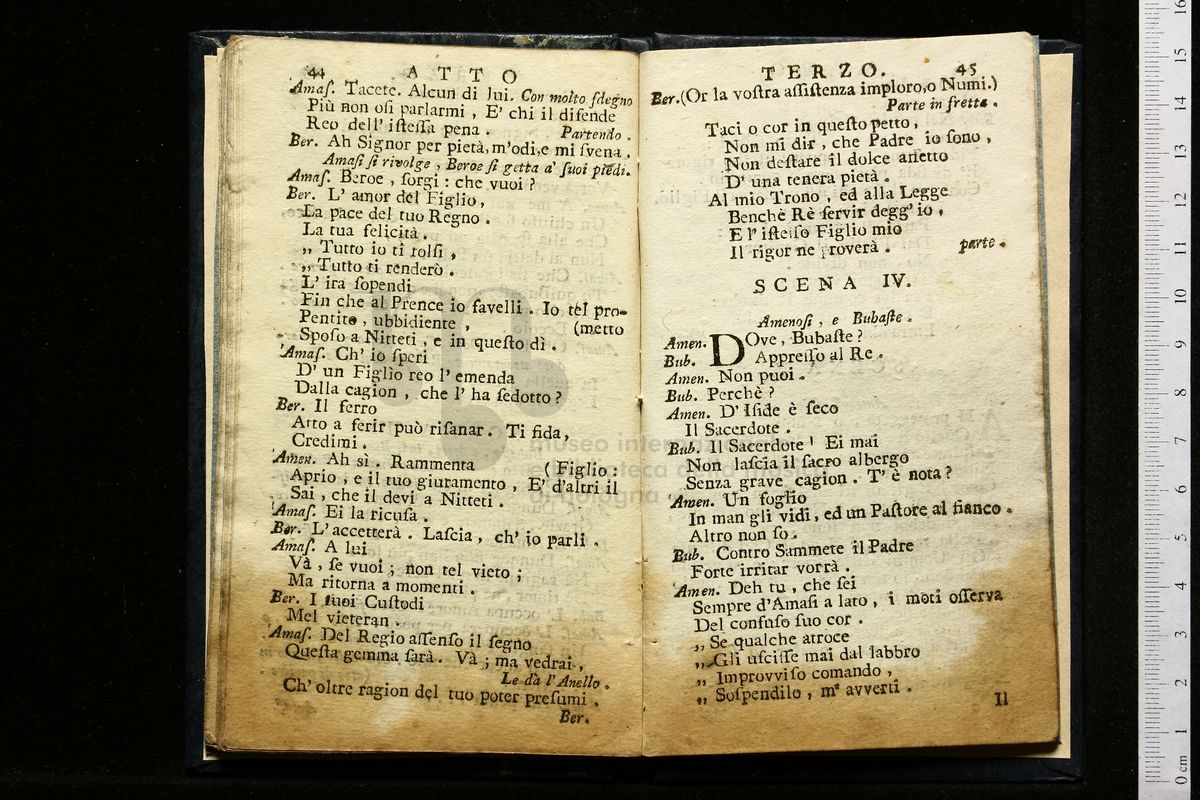 44 ATTO
Amaſ. Tacete. Alcun di lui. Con molto ſdegno
Più non oſi parlarmi, E' chi il difende
Reo dell' iſteſſa pena. Partendo.
Ber. Ah Signor per pietà, m'odi, e mi ſvena.
Amaſi ſi rivolge, Beroe ſi getta a' ſuoi piedi.
Amaſ. Beroe, ſorgi: che vuoi
Ber. L' amor del Figlio,
La pace del tuo Regno.
La tua felicità.
„ Tutto io ti tolſi,
„ Tutto ti renderò.
L' ira ſopendi
Fin che al Prence io favelli. Io tel pro-
Pentito, ubbidiente, (metto
Spoſo a Nitteti, e in queſto dì.
Amaſ. Ch' io ſperi
D' un Figlio reo l' emenda
Dalla cagion, che l' ha ſedotto?
Ber. Il ferro
Atto a ferir può riſanar. Ti fida,
Credimi.
Amen. Ah sì. Rammenta (Figlio:
Aprio, e il tuo giuramento, E' d'altri il
Sai, che il devi a Nitteti.
Amaſ. Ei la ricuſa.
Ber. L'accetterà. Laſcia, ch' io parli.
Amaſ. A lui
Và, ſe vuoi; non tel vieto;
Ma ritorna a momenti.
Ber. I ſuoi Cuſtodi
Mel vieteran.
Amaſ. Del Regio aſſenſo il ſegno
Queſta gemma ſarà. Và; ma vedrai,
Le dà l'Anello.
Ch' oltre ragion del tuo poter preſumi.
Ber.
TERZO. 45
Ber. (Or la voſtra aſſiſtenza imploro, o Numi.)
Parte in fretta.
Taci o cor in queſto petto,
Non mi dir, che Padre io ſono,
Non deſtare il dolce affetto
D' una tenera pietà.
Al mio Trono, ed alla Legge
Benchè Rè ſervir degg' io,
E l' iſteſſo Figlio mio
Il rigor ne proverà. parte.
SCENA IV.
Amenoſi, e Bubaſte.
Amen. DOve, Bubaſte?
Bub. Appreſſo al Re.
Amen. Non puoi.
Bub. Perchè?
Amen. D' Iſide è ſeco
Il Sacerdote.
Bub. Il Sacerdote! Ei mai
Non laſcia il ſacro albergo
Senza grave cagion. T' è nota?
Amen. Un foglio
In man gli vidi, ed un Paſtore al fianco.
Altro non ſo.
Bub. Contro Sammete il Padre
Forte irritar vorrà.
Amen. Deh tu, che ſei
Sempre d'Amaſi a lato, i moti oſſerva
Del confuſo ſuo cor.
„ Se qualche atroce
„ Gli uſciſſe mai dal labbro
„ Improvviſo comando,
„ Soſpendilo, m' avverti.
Il